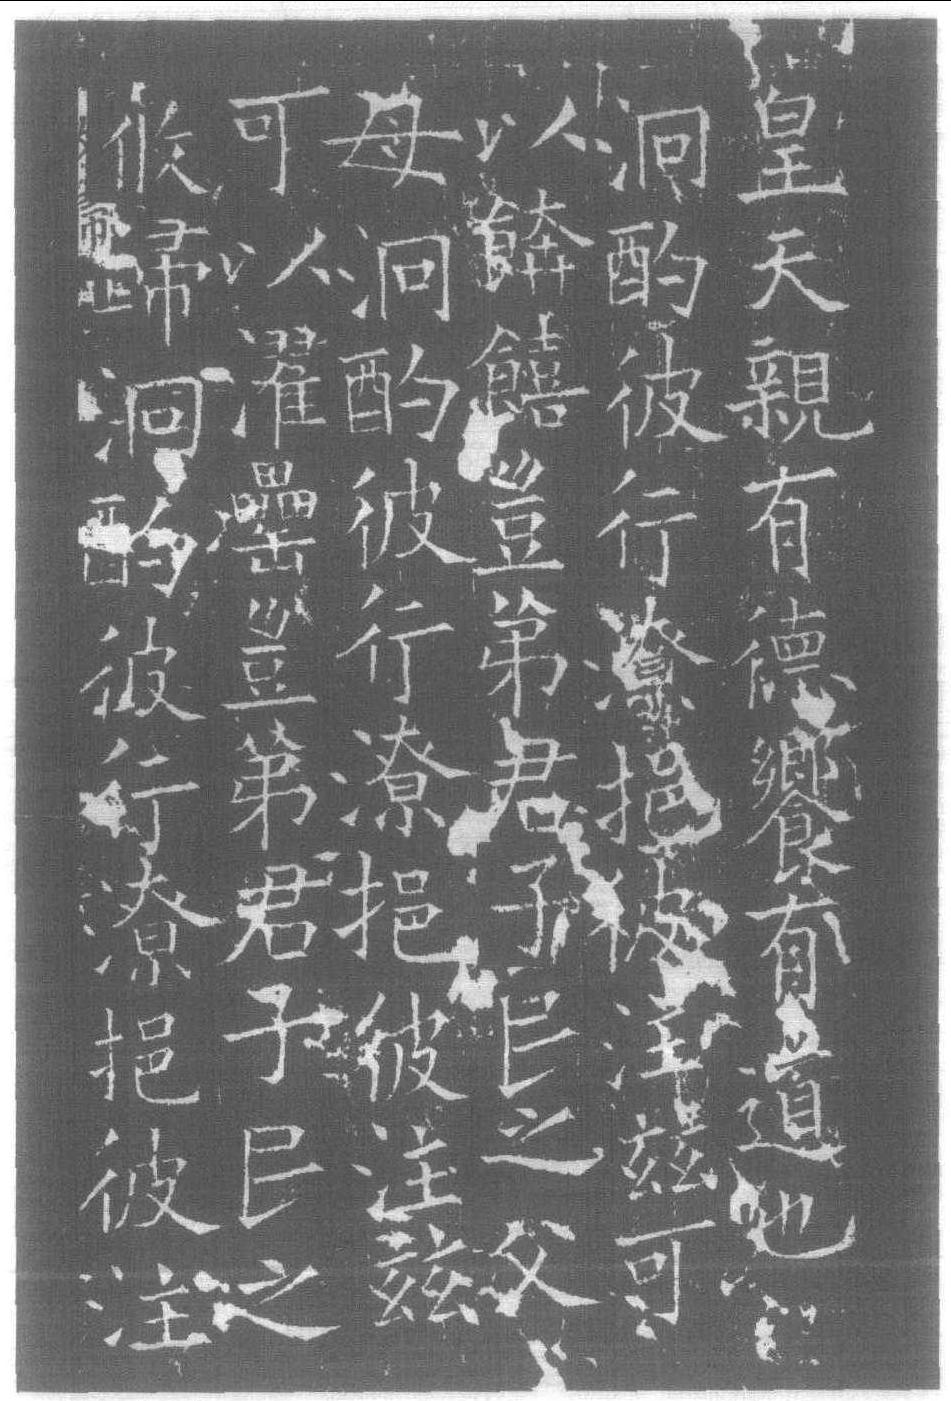 皇天親有德饗有道也
泂酌彼行潦挹彼注茲可
以餴饎豈弟君子民之父
母泂酌彼行潦挹彼注茲
可以濯罍豈弟君子民之
攸歸泂酌彼行潦挹彼注